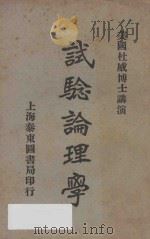 美國杜威博士講演
試驗論理學
上海泰東圖書局印行